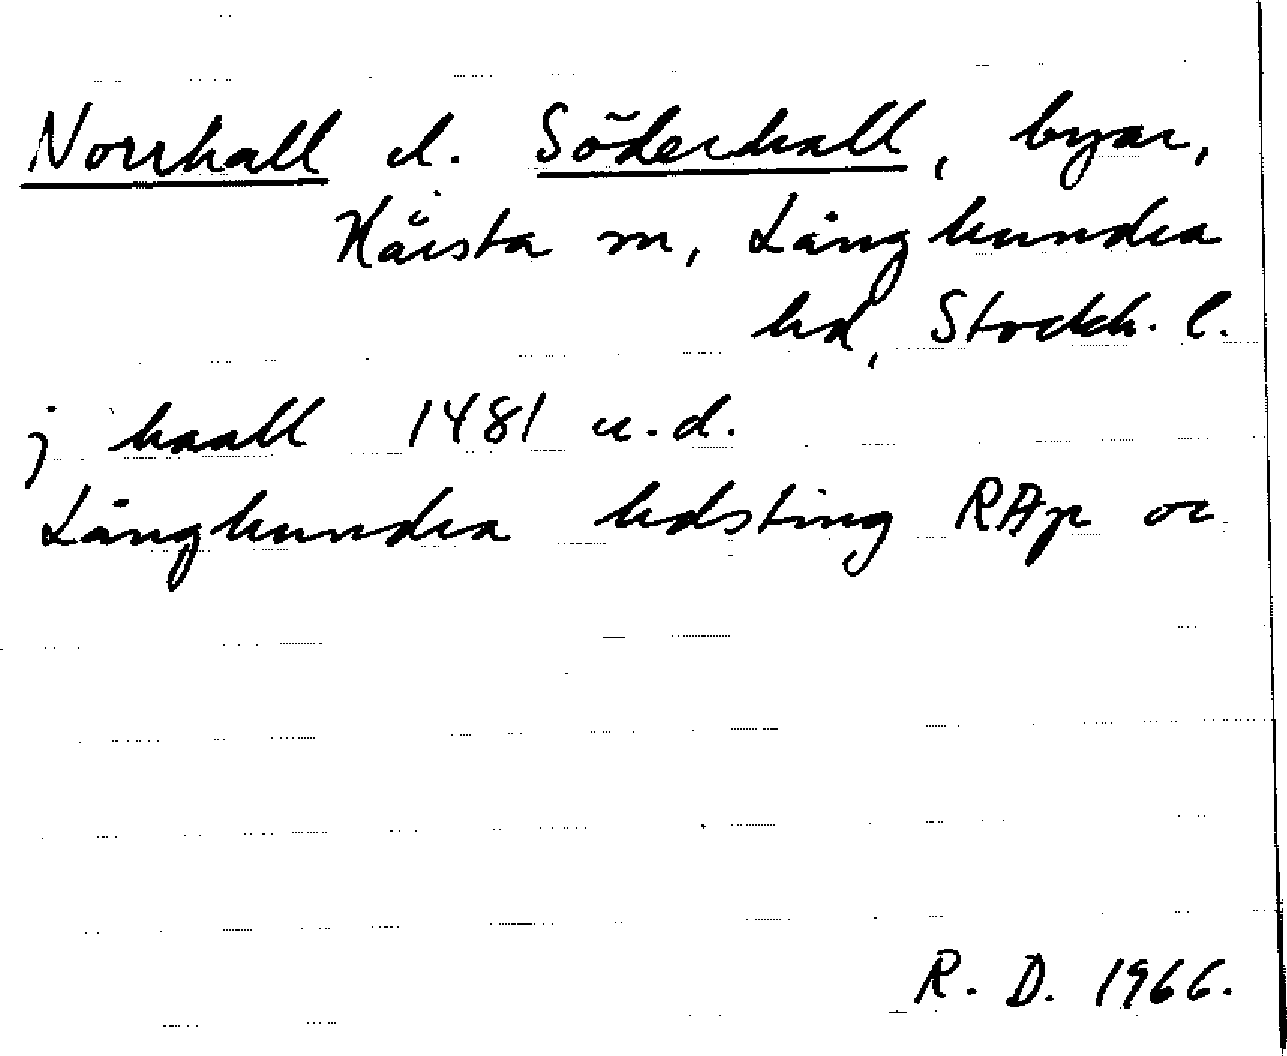 Norrhall el. Söderhall, byar,
Närsta sn, Långhundra
hd, Stockh. l.
j haall 1481 u.d.
Långhundra hdsting RAp or
R. D. 1966.